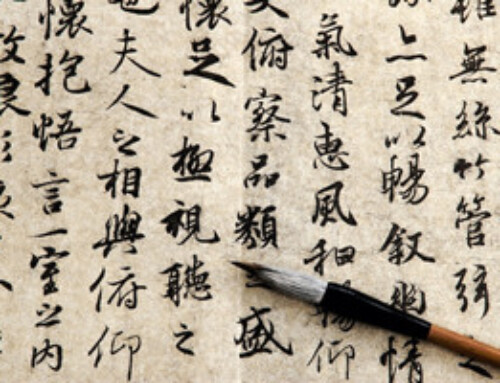 雖無絲竹管弦之
詠亦足以暢敘幽情
氣清惠風和暢仰
大俯察品類之盛
懷足以極視聽之
也夫人之相與俯仰
懷抱悟言一室之內
放浪形骸